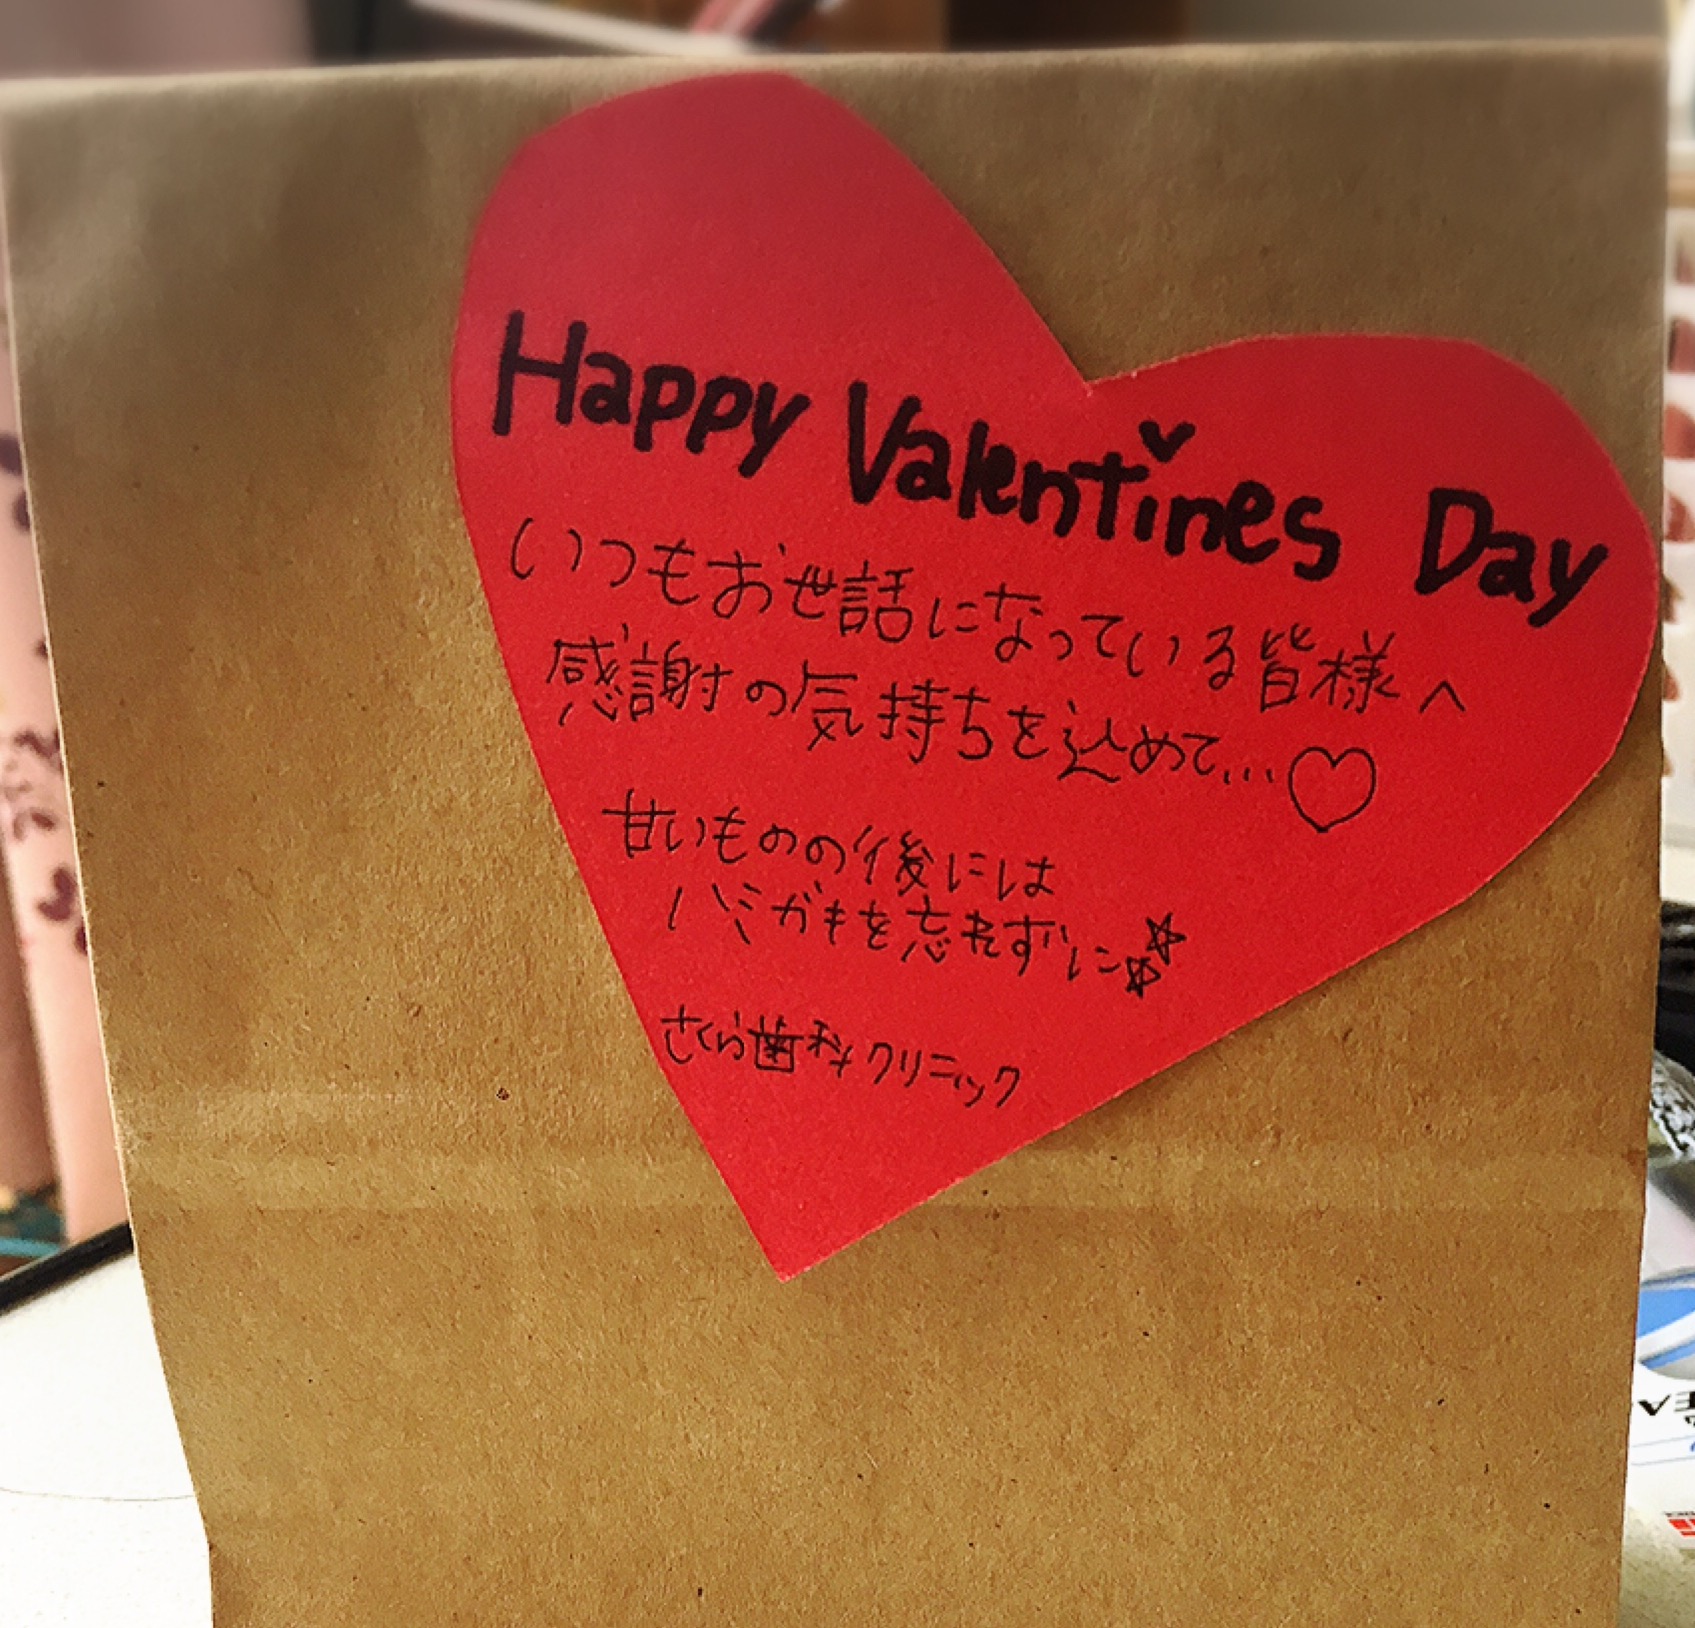 Happy Valentines Day
いつもお世話になっている皆様へ
感謝の気持ちを込めて...♡
甘いものの後には
ハミガキを忘れずに☆☆
さくら歯科クリニック